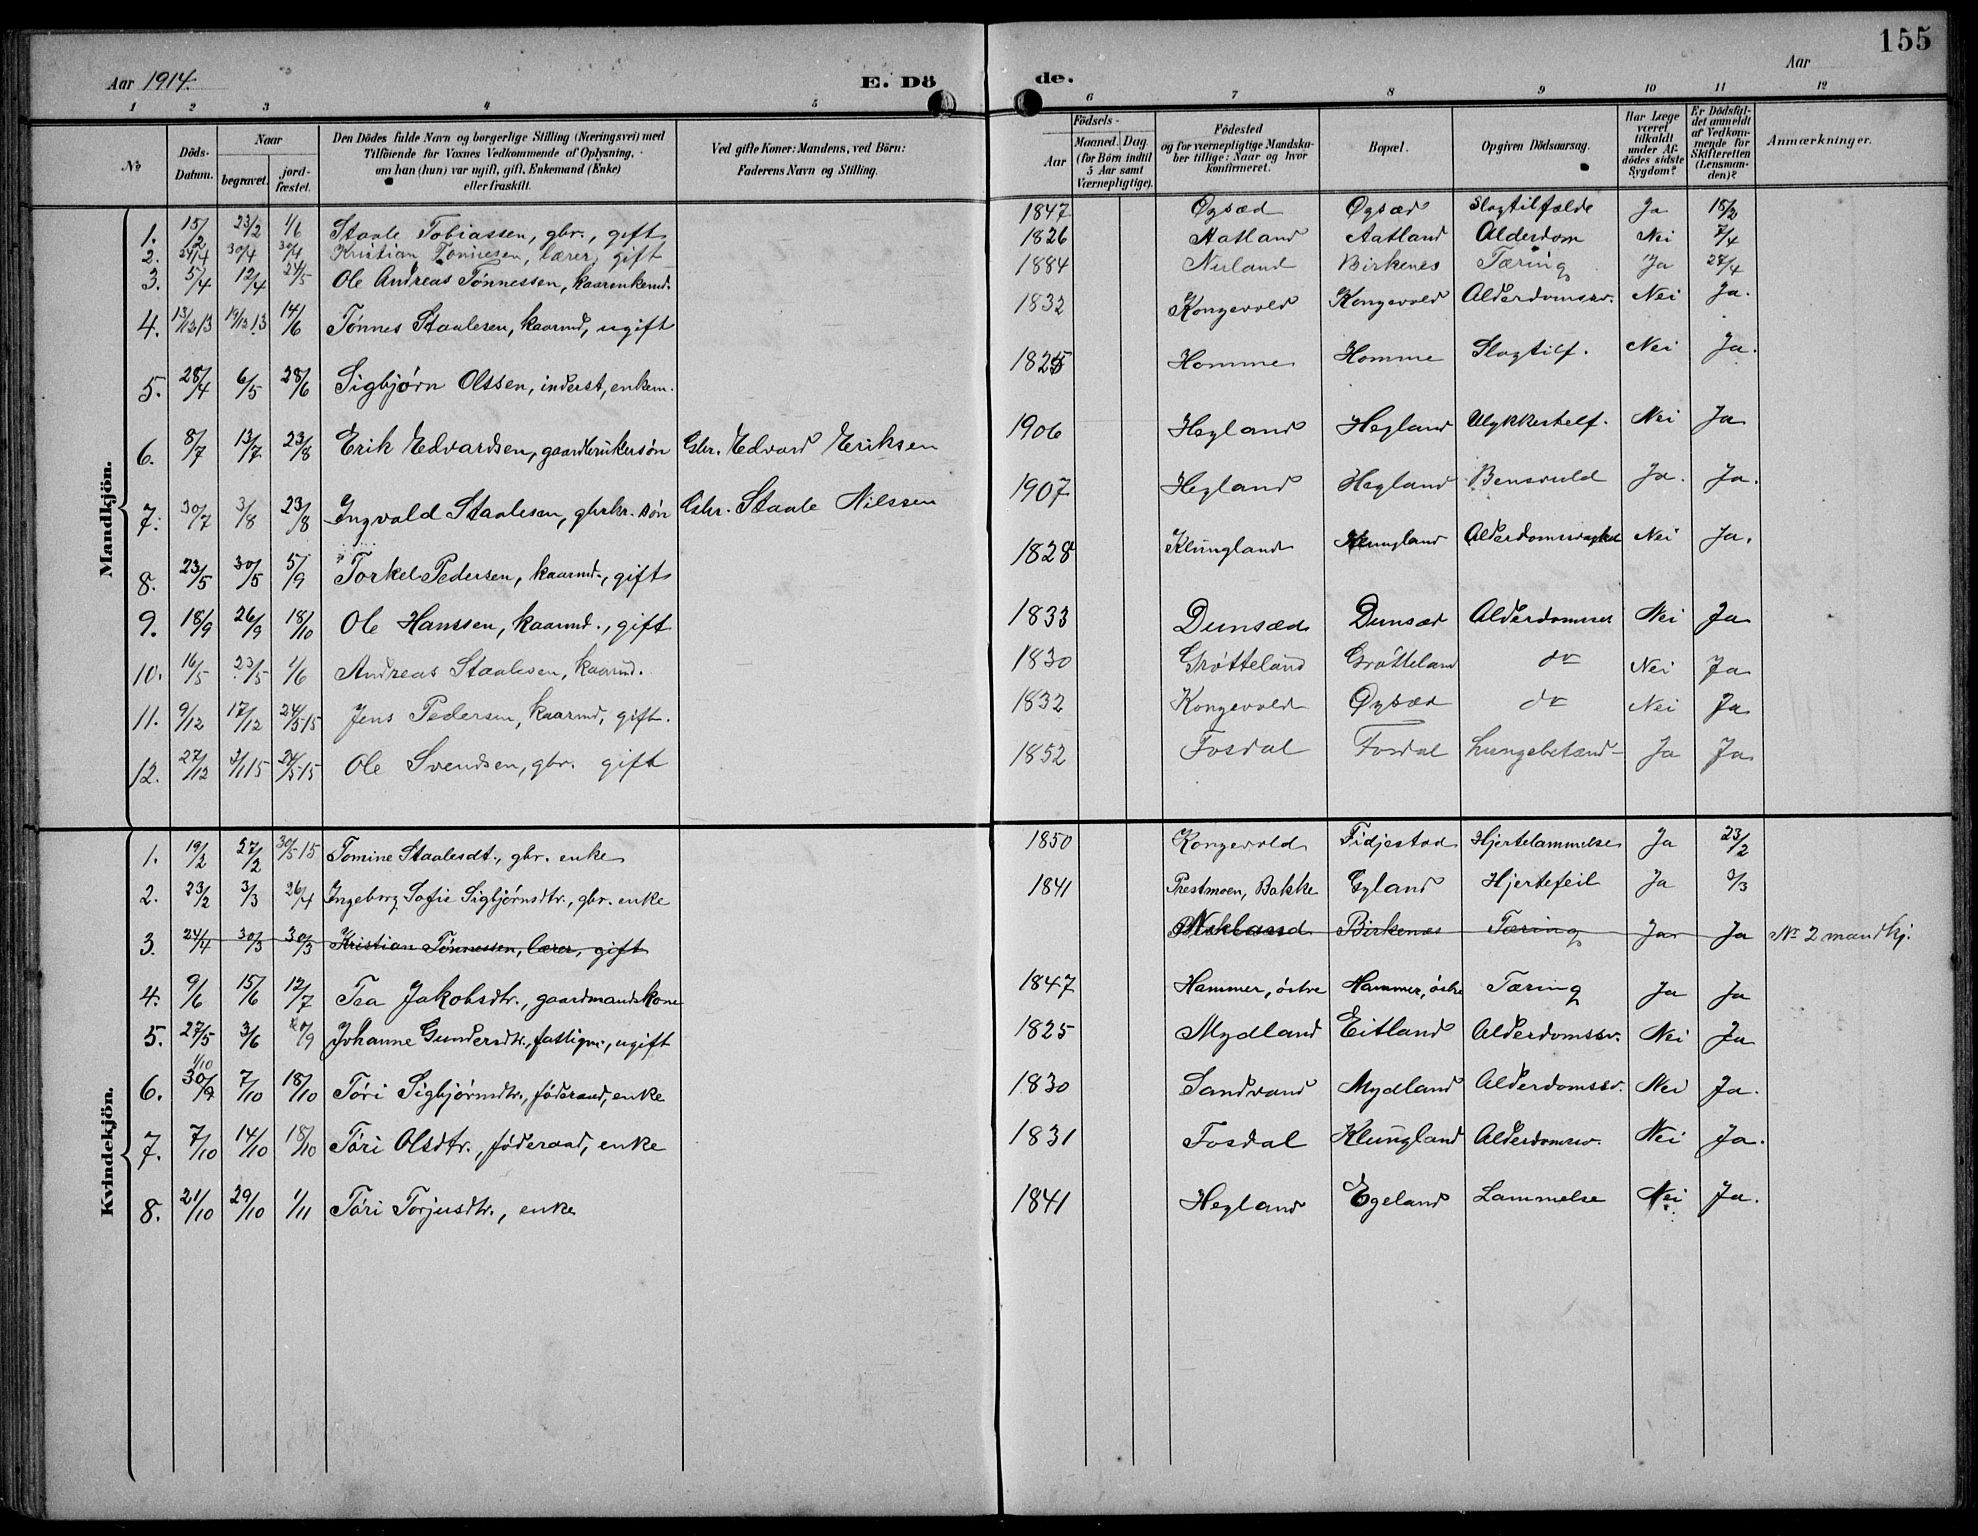 155
Aar 1914. E. Dö de. Aar
1 2 3 4 5 6 7 8 9 10 11 12
No Döds-Datum. Naar begravet. jord-fæstet. Den Dödes fulde Navn og borgerlige Stilling (Næringsvei) med Tilföiende for Voxnes Vedkommende af Oplysning, om han (hun) var ugift, gift, Enkemand (Enke) eller fraskilt. Ved gifte Koner: Mandens, ved Börn: Faderens Navn og Stilling. Födsels- Aar Maaned. Dag (for Börn indtil 5 Aar samt Værnepligtige). Födested og for værnepligtige Mandskaber tillige: Naar og hvor konfirmeret. Bopæl. Opgiven Dödsaarsag. Har Læge været tilkaldt under Afdödes sidste Sygdom? Er Dödsfaldet anmeldt af Vedkommende for Skifteretten (Lensmanden)? Anmærkninger.
Mandkjön.
1. 15/2 23/2 1/6 Staale Tobiassen, gbr., gift 1847 Øysæd Øysæd Slagtilfælde Ja 18/2
2. 24/4 30/4 30/4 Kristian Tønnesen, lærer, gift 1826 Aatland Aatland Alderdom Nei 7/4
3. 5/4 12/4 24/5 Ole Andreas Tønnessen, kaarenkemd. 1884 Nuland Birkenes Tæring Ja 28/4
4. 13/12 13 19/12 13 14/6 Tønnes Staalesen, kaarmd, ugift 1832 Kongevold Kongevold Alderdomssv. Nei Ja.
5. 28/4 6/5 28/6 Sigbjørn Olssen, inderst, enkem. 1825 Homme Homme Slagtilf. Nei Ja.
6. 8/7 13/7 23/8 Erik Edvardsen, gaardbrukersøn Gbr. Edvard Eriksen 1906 Hegland Hegland Ulykkestilf. Nei Ja
7. 30/7 3/8 23/8 Ingvald Staalesen, gbrkr. søn Gbr. Staale Nilssen 1907 Hegland Hegland Bensvuld Ja. Ja.
8. 23/5 30/5 5/9 Torkel Pedersen, kaarmd., gift 1828 Klungland Klungland Nei Ja.
9. 18/9 26/9 18/10 Ole Hanssen, kaarmd., gift 1833 Dunsæd Dunsæd Nei Ja
10. 16/5 23/5 1/6 Andreas Staalesen, kaarmd. 1830 Grøtteland Grøtteland do Nei Ja
11. 9/12 17/12 24/5 15 Jens Pedersen, kaarmd, gift. 1832 Kongevold Øysæd do Nei Ja
12. 27/12 3/1 15 24/5 15 Ole Svendsen, gbr. gift 1852 Fosdal Fosdal Lungebetænd- Ja Ja
Kvindekjön.
1. 19/2 27/2 30/5 15 Tomine Staalesdt., gbr. enke 1850 Kongevold Fidjestad Hjertelammelse Ja 23/2
2. 23/2 3/3 26/4 Ingeborg Sofie Sigbjørnsdtr., gbr. enke 1841 Prestmoen, Bakke Gyland Hjertefeil Ja 3/3
3. 24/4 30/3 30/3 Kristian Tønnessen, lærer, gift Birkenes Tæring Ja Ja No 2 mandkj.
4. 9/6 15/6 12/7 Tea Jakobsdtr., gaardmandskone 1847 Hammer, östre Hammer, östre Tæring Ja Ja
5. 27/5 3/6 Johanne Gundersdtr., fattigm., ugift 1825 Mydland Eitland Alderdomssv. Nei Ja
6. 1/10 30/9 7/10 18/10 Tøri Sigbjørnsdtr., føderaad, enke 1830 Sandvand Mydland Alderdomssv. Nei Ja.
7. 7/10 14/10 18/10 Tøri Olsdtr., føderaad, enke 1831 Fosdal Klungland Alderdomssv. Nei Ja.
8. 21/10 29/10 1/11 Tøri Torjusdtr., enke 1841 Hegland Egeland Lammelse Nei Ja.